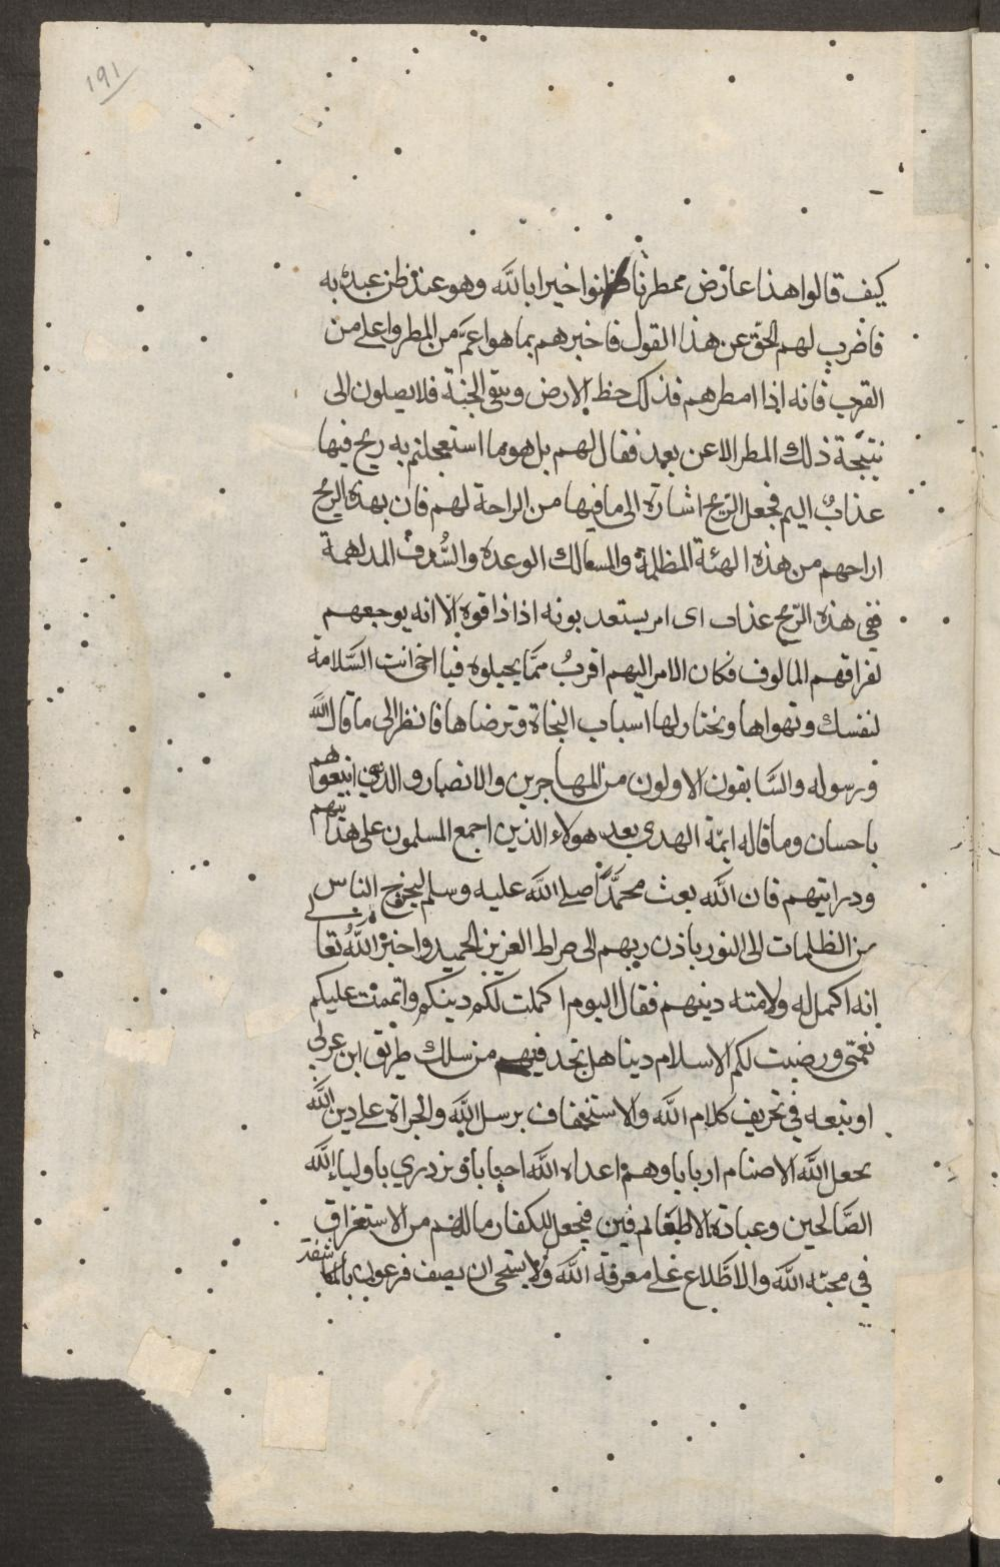 ١٩١
كيف قالوا هذا عارض ممطرنا ظنوا خيرا بالله وهو عند ظن عبده به
فاضرب لهم الحق عن هذا القول فاخبرهم بما هو اعمّ من المطر واعلى من
القرب فانه اذا امطرهم فذلك حظ الارض وبقي الجنة فلا يصلون الى
نتيجة ذلك المطر الا عن بعد فقال لهم بل هو ما استعجلتم به ريح فيها
عذابٌ اليم فجعل الريح اشارة الى ما فيها من الراحة لهم فان بهذه الريح
اراحهم من هذه الهئة المظلمة والمسالك الوعده والسُّدف المدلهمة
ففي هذه الريح عذاب اى امر يستعدبونه اذا ذاقوه الا انه يوجعهم
لفراقهم المالوف فكان الامر اليهم اقربُ ممّا يخيلوه فيا اخى انت السَّلامة
لنفسك وتهواها وتختار لها اسباب النجاة وترضاها فانظر الى ما قال الله
ورسوله والسَّابقون الاولون من المهاجرين والانصار والذين اتبعوهم
باحسان وما قاله ايمّة الهدى بعد هولاء الذين اجمع المسلمون على هدايتهم
ودرايتهم فان الله بعث محمَّدًا صلى الله عليه وسلم ليخرج الناس
من الظلمات الى النور باذن ربهم الى صراط العزيز الحميد واخبرَ اللَّهُ تعالى
انه اكمل له ولامته دينهم فقال اليوم اكملت لكم دينكم واتممت عليكم
نعمتى ورضيت لكم الاسلام دينا هل تجد فيهم من سلك طريق ابن عربي
او تبعه في تحريف كلام الله والاستخفاف برسل الله والجراة على دين الله
بجعل الله الاصنام اربابا وهم اعداء الله احبابا ويزدري باولياء الله
الصَّالحين وعباده فيجعل للكفار ما للهم من الاستغراق
في محبّة الله والاطّلاع على معرفة الله ولا يستحى ان يصف فرعون